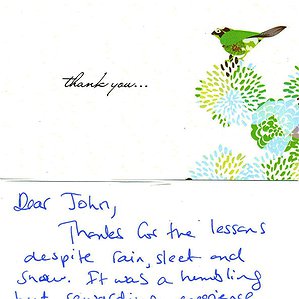 thank you...
Dear John,
Thanks for the lessons
despite rain, sleet and
snow. It was a humbling
but rewarding experience